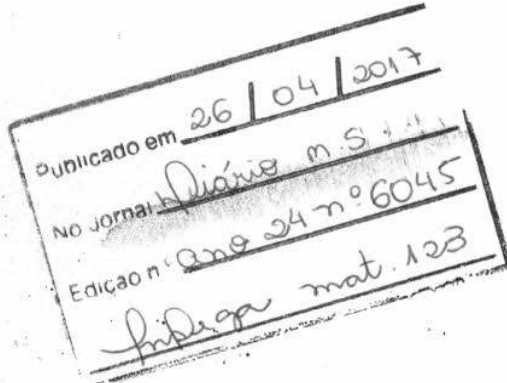 Publicado em 26/04/2017
No Jornal Diário M.S
Edição nº ano 24 nº 6045
mat. 123